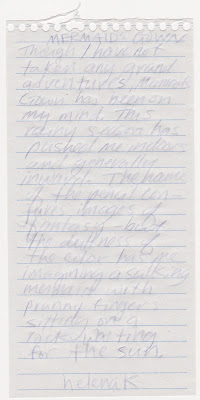 MERMAIDS CROWN
Though I have not
taken any grand
adventures, Mermaids
Crown has been on
my mind. This
rainy season has
pushed me indoors
and generally
inward. The name
of the pencil con-
jures images of
fantasy - but
the dullness of
the color has me
imagining a sulking
mermaid with
pruny fingers
sitting on a
rock waiting
for the sun.
helena K